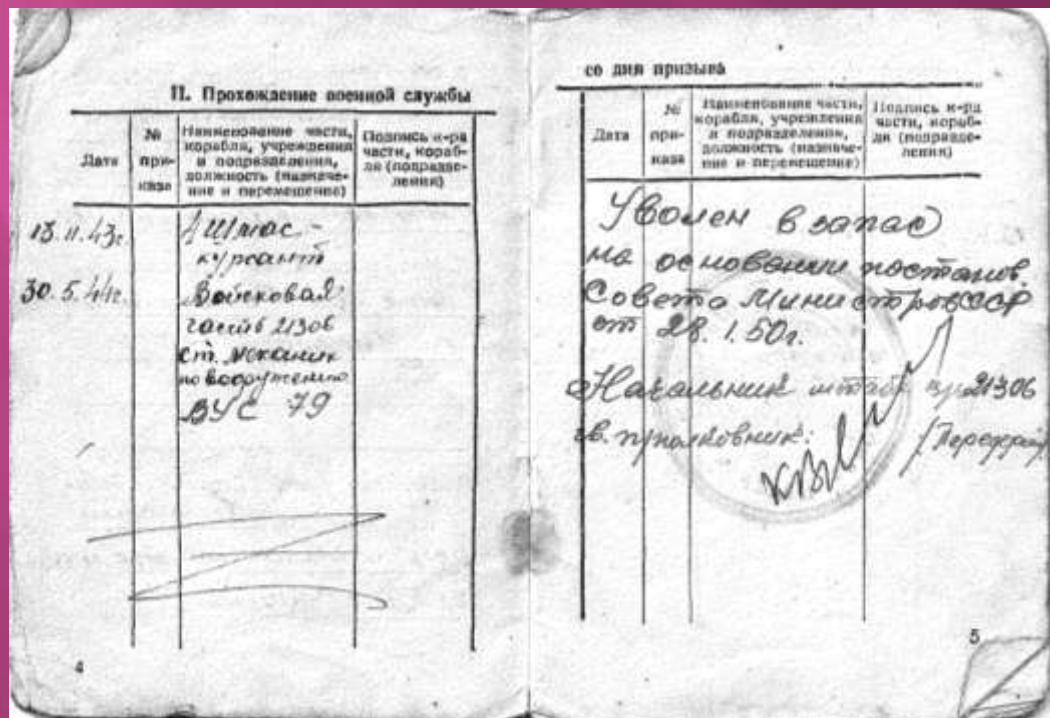 II. Прохождение военной службы
Дата
№ при-
каза
Наименование части,
корабля, учреждения
и подразделения,
должность (назначе-
ние и перемещение)
Подпись к-ра
части, кораб-
ля (подразде-
ления)
13.11.43г.
АШмас -
курсант
30.5.44г.
Войсковая
часть 21306
ст. механик
по вооружению
ВУС 79
4
со дня призыва
Дата
№
при-
каза
Наименование части,
корабля, учреждения
и подразделения,
должность (назначе-
ние и перемещение)
Подпись к-ра
части, кораб-
ля (подразде-
ления)
Уволен в запас
на основании постанов.
Совета Министров СССР
от 28.1.50г.
Начальник штаба в/ч 21306
гв. п/полковник:
5